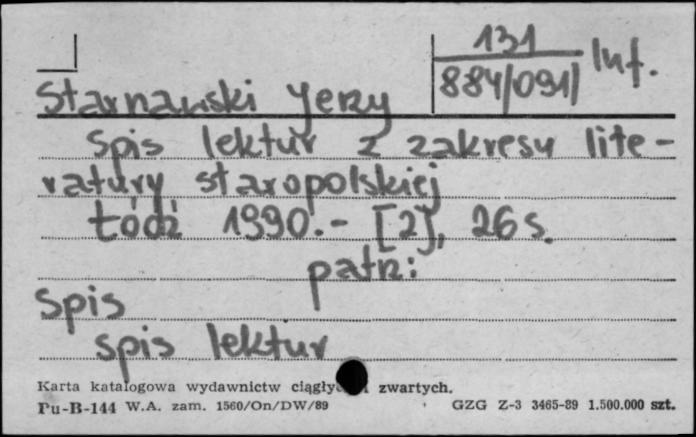 131
884/091/ Inf.
Starnawski Jerzy
Spis lektur z zakresu lite-
ratury staropolskiej
Łódź 1990.- [2], 26 s.
patrz:
Spis
spis lektur
Karta katalogowa wydawnictw zwartych.
Pu-B-144 W.A. zam. 1560/On/DW/89 GZG Z-3 3465-89 1.500.000 szt.